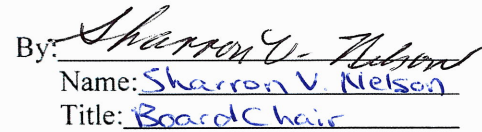 By: Sharron V. Nelson
Name: Sharron V. Nelson
Title: Board Chair